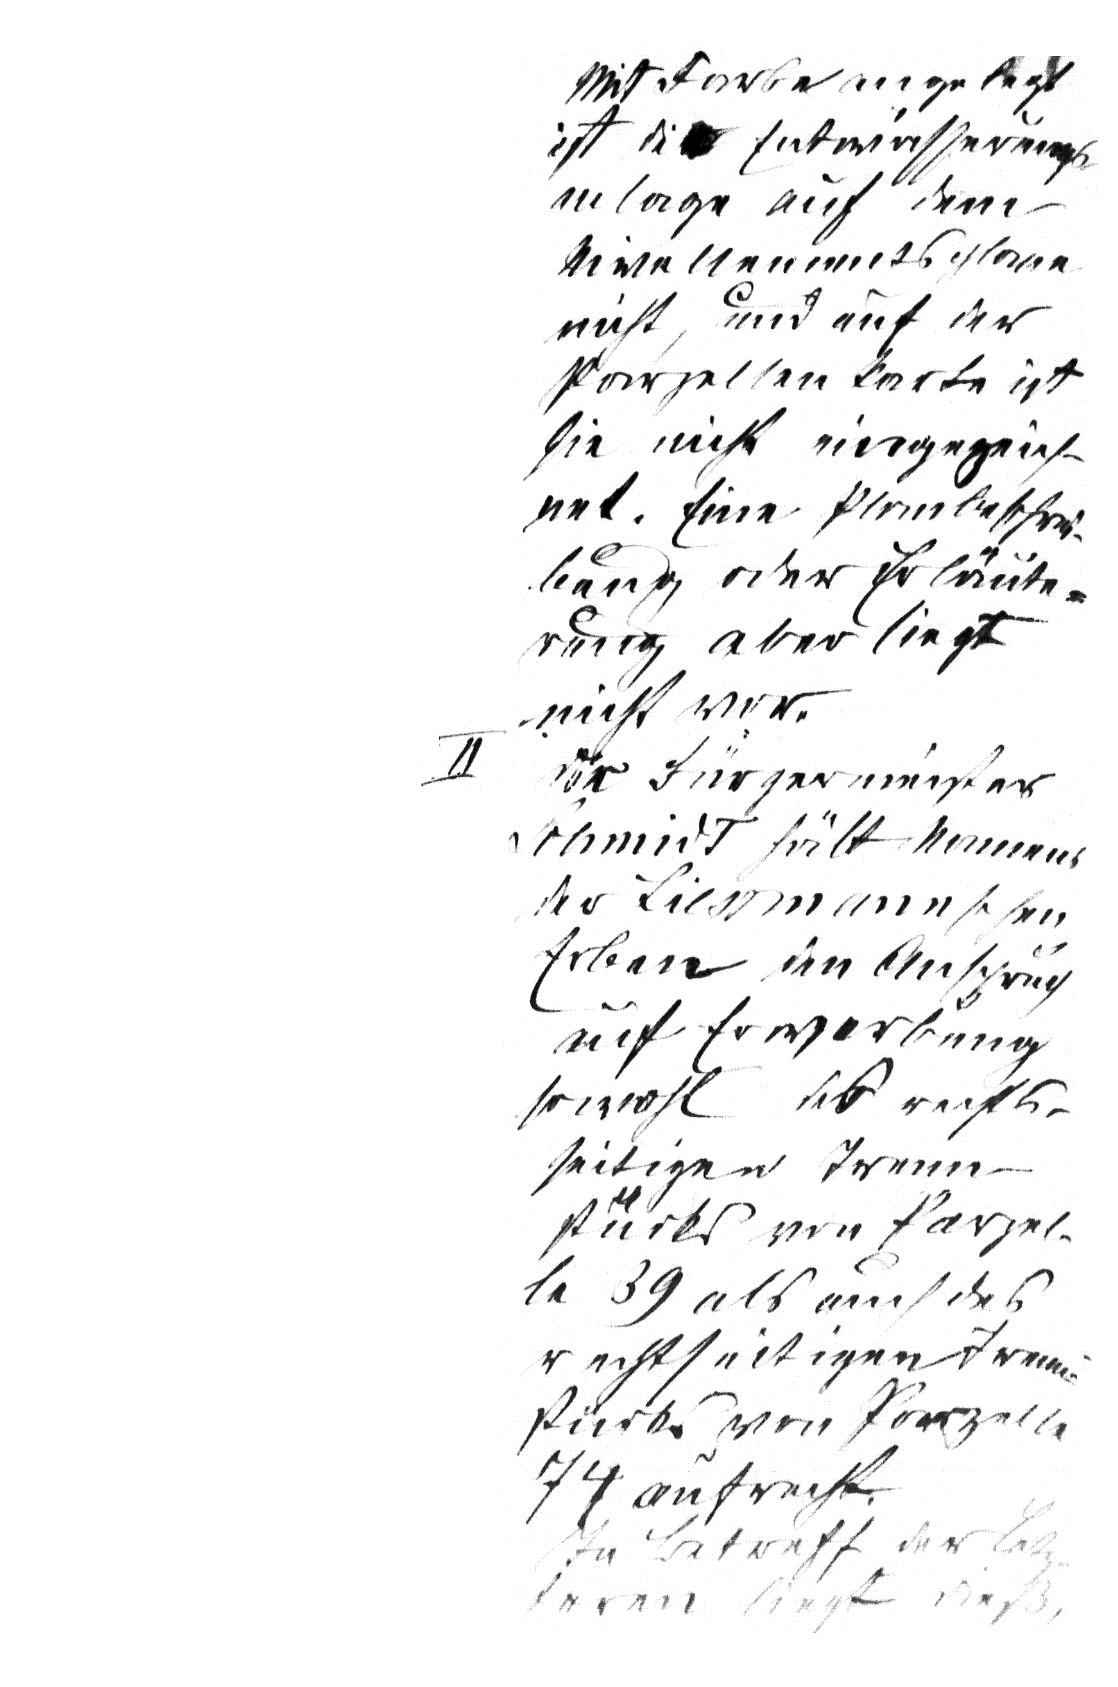 Mit Farbe angelegt
ist die Entwässerungs
anlage auf dem
Nivellementsplane
nicht, und auf der
Parzellenkarte ist
sie nicht eingezeich-
net. Eine Planbeschrei-
bung oder Erläute=
rung aber liegt
nicht vor.
II
Der Bürgermeister
Schmidt hält Namens
der schen
Erben den Anspruch
auf Erwerbung
sowohl des rechts-
seitigen Trenn-
stücks von Parzel-
le 39 als auch des
rechtseitigen Trenn-
stücks von Parzelle
74 aufrecht.
In Betreff der Letz-
teren liegt dieß,